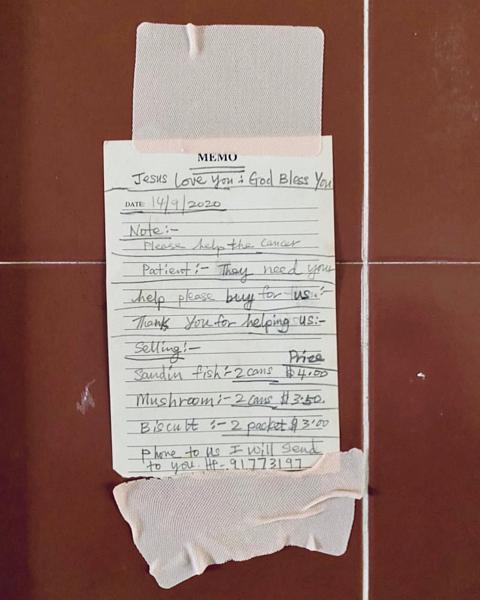 MEMO
Jesus Love You :- God Bless You
DATE 14/9/2020
Note:-
Please help the cancer
Patient:- They need your
help please buy for us:-
Thank You for helping us:-
Selling:-
Price
Saudin fish:- 2 cans $4.00
Mushroom:- 2 cans $3.50.
Biscubt :- 2 packet $3.00
Phone to us I will Send
to you. HP-91773197